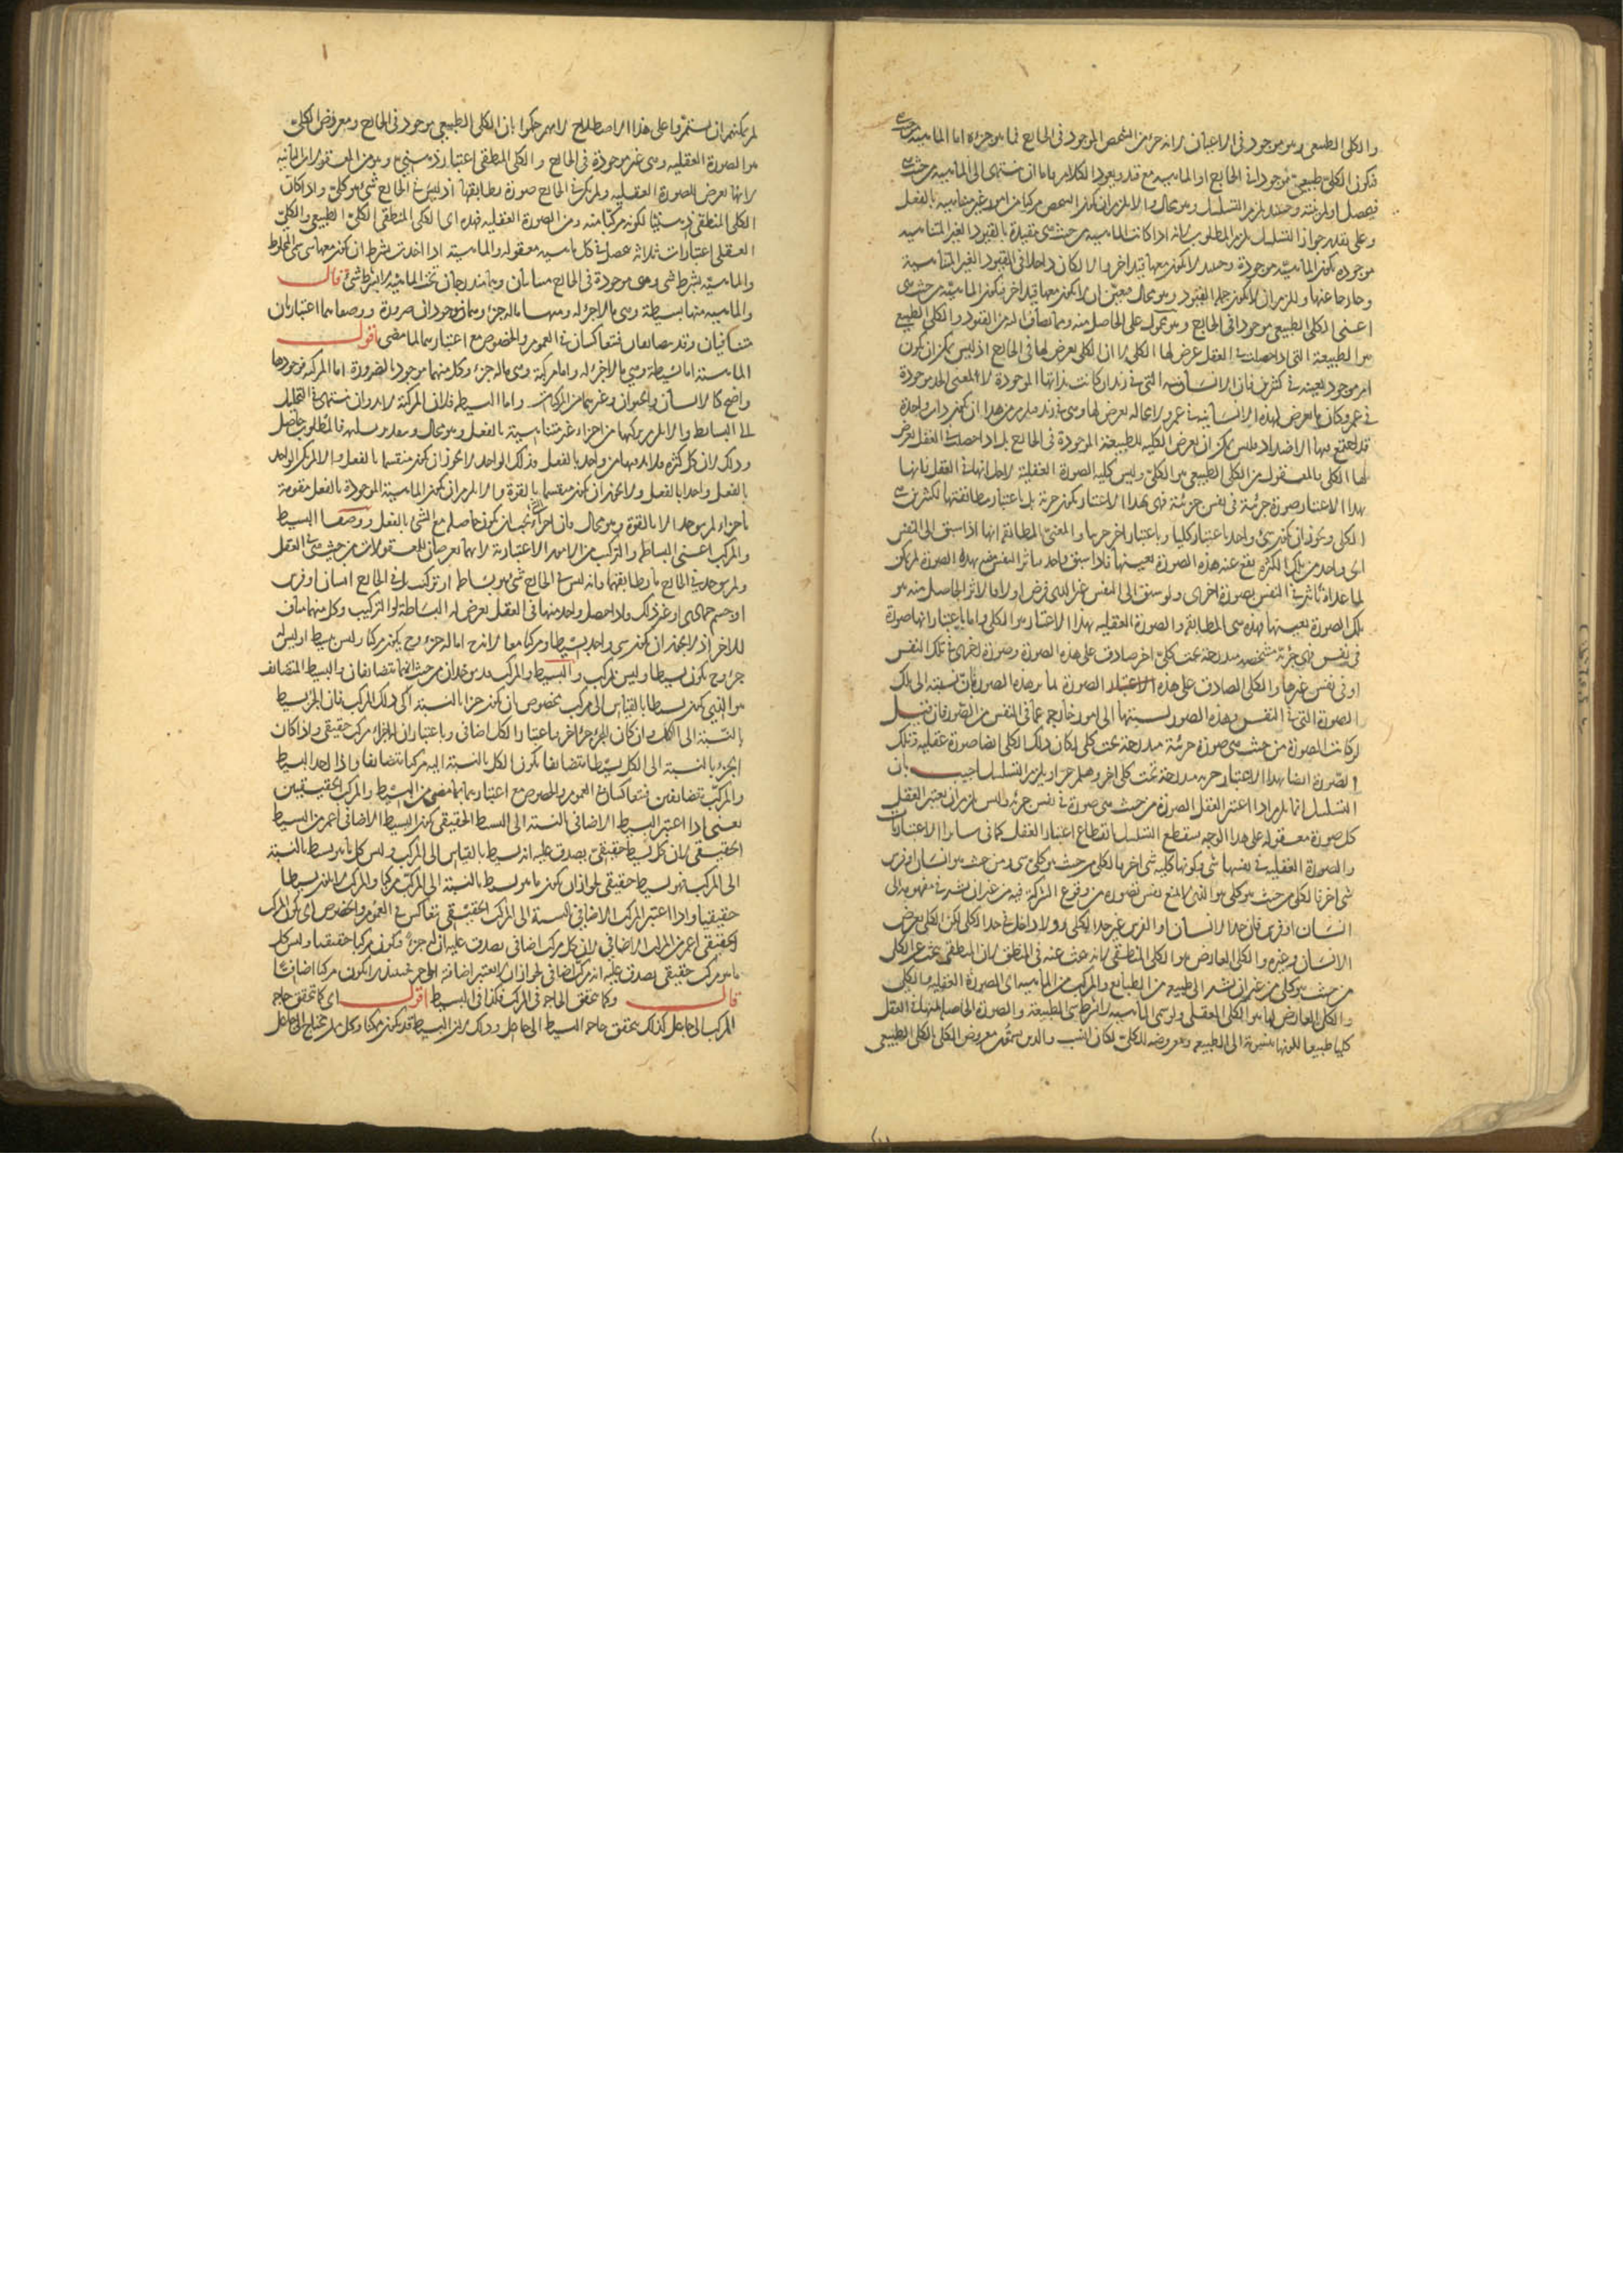 والكلى الطبيعى هو موجود فى الاعيان لانه جزء من الشخص الموجود فى الخارج فما هو جزءه اما الماهية من حيث هى
فتكون الكلى طبيعى موجودا فى الخارج او الماهية مع قيد ويعود الكلام فاما ان ينتهى الى الماهية من حيث هى
فيحصل او لم ينته وحينئذ يلزم التسلسل وهو محال والا لزم ان يكون الشخص مركبا من امور غير متناهية بالفعل
وعلى تقدير جواز التسلسل يلزم المطلوب لانه اذا كانت الماهية من حيث هى مقيدة بالقيود الغير المتناهية
موجودة تكون الماهية موجودة وحينئذ لا يكون معها قيد اخر والا لكان داخلا فى القيود الغير المتناهية
وخارجا عنها ويلزم ان لا يكون جملة القيود وهو محال فتعين ان لا يكون معها قيد اخر فيكون الماهية من حيث هى
اعنى الكلى الطبيعى موجودا فى الخارج وهو مقول على الحاصل منه ومما يضاف اليه من القيود والكلى الطبيعى
هو الطبيعة التى اذا حصلت فى العقل عرض لها الكلى لا ان الكلى يعرض لها فى الخارج اذ ليس يمكن ان يكون
امر موجود بعينه فى كثيرين فان الانسانية التى فى زيد ان كانت بذاتها الموجودة لا بمعنى الحد موجودة
فى عمرو كان ما يعرض لهذه الانسانية فى عمرو لا محالة يعرض لها وهى فى زيد فيلزم من هذا ان يكون ذات واحدة
قد اجتمع فيها الاضداد فليس يمكن ان يعرض الكلية للطبيعة الموجودة فى الخارج بل اذا حصلت فى العقل يعرض
لها الكلى فالمعقول من الكلى الطبيعى هو الكلى وليس كلية الصورة العقلية لاجل انها فى العقل فانها
بهذا الاعتبار صورة جزئية فى نفس جزئية فهى بهذا الاعتبار يكون جزئية بل باعتبار مطابقتها لكثيرين هى
الكلى ويجوز ان يكون شىء واحد باعتبار كليا وباعتبار اخر جزئيا والمعنى المطابقة انها اذا سبق الى النفس
اى واحد من تلك الكثرة يقع عنه هذه الصورة بعينها فاذا سبق واحد فتأثر النفس منه بهذه الصورة لم يكن
لما عداه تأثير فى النفس بصورة اخرى ولو سبق الى النفس غير الذى فرض اولا فالاثر الحاصل منه هو
تلك الصورة بعينها فهذه هى المطابقة والصورة العقلية بهذا الاعتبار هو الكلى واما باعتبار انها صورة
فى نفس فهى جزئية متشخصة مندرجة تحت كلى اخر صادق على هذه الصورة وصورة اخرى فى تلك النفس
او فى نفس غيرها والكلى الصادق على هذه الاعتبار الصورة لما هو هذه الصورة فان نسبته الى تلك
الصورة التى فى النفس وهذه الصور نسبتها الى امور خارجة عما فى النفس من الصور فان قيل
لو كانت الصورة من حيث هى صورة جزئية مندرجة تحت كلى لكان ذلك الكلى ايضا صورة عقلية فتلك
الصورة ايضا بهذا الاعتبار جزئية مندرجة تحت كلى اخر وهلم جرا ويلزم التسلسل اجيب بان
التسلسل انما يلزم اذا اعتبر العقل الصورة من حيث هى صورة فى نفس جزئية وليس يلزم ان يعتبر العقل
كل صورة معقولة على هذا الوجه فينقطع التسلسل بانقطاع اعتبار العقل كما فى سائر الاعتباريات
والصورة العقلية فى نفسها شىء وكونها كلية شىء اخر فالكلى من حيث هو كلى شىء ومن حيث هو انسان او فرس
شىء اخر فالكلى من حيث هو كلى هو الذى لا يمنع نفس تصوره من وقوع الشركة فيه من غير ان يشير فى مفهومه الى
انسان او فرس فان حد الانسان او الفرس غير حد الكلى ولا داخل فى حد الكلى لكن الكلى يعرض
الانسان وغيره والكلى العارض هو الكلى المنطقى لانه يبحث عنه فى المنطق لان المنطقى يبحث عن الكلى
من حيث هو كلى من غير ان يشير الى طبيعة من الطبايع والمركب من الماهية اى الصورة العقلية والكلى
والكلى العارض لها هو الكلى العقلى ولو سمى الماهية لا بشرط شىء الطبيعة والصورة الحاصلة منها فى العقل
كليا طبيعيا لكونها منسوبة الى الطبيعة ومعروضة للكلى لكان انسب والذين سموا معروض الكلى الكلى الطبيعى
لم يمكنهم ان يستمروا على هذا الاصطلاح لانهم حكموا بان الكلى الطبيعى موجود فى الخارج ومعروض الكلى
هو الصورة العقلية وهى غير موجودة فى الخارج والكلى المنطقى اعتبار ذهنى وهو من المعقولات الثانية
لانها تعرض للصورة العقلية ولم يكن فى الخارج صورة يطابقها اذ ليس فى الخارج شىء هو كلى واذا كان
الكلى المنطقى ذهنيا لكونه مركبا منه ومن الصورة العقلية فهذه اى الكلى المنطقى الكلى الطبيعى والكلى
العقلى اعتبارات ثلاثة تحصل فى كل ماهية معقولة والماهية اذا اخذت بشرط ان يكون معها شىء سمى المخلوط
والماهية بشرط شىء وهى موجودة فى الخارج متباينان وهما مندرجان تحت الماهية لا بشرط شىء قال
والماهية منها بسيطة وهى ما لا جزء له ومنها ما له جزء وهما موجودان ضرورة ووصفاهما اعتباريان
متنافيان وقد يتضايفان فيتعاكسان فى العموم والخصوص مع اعتبارهما لما مضى اقول
الماهية اما بسيطة وهى ما لا جزء له واما مركبة وهى ما له جزء وكل منهما موجود بالضرورة اما المركبة فوجودها
واضح كالانسان والحيوان وغيرهما من المركبات واما البسيطة فلان المركبة لا بد وان تنتهى فى التحليل
الى البسائط والا لزم تركبها من اجزاء غير متناهية بالفعل وهو محال وبتقدير تسليمه فالمطلوب حاصل
وذلك لان كل كثرة فلا بد فيها من واحد بالفعل وذلك الواحد لا يجوز ان يكون منقسما بالفعل والا لم يكن الواحد
بالفعل واحدا بالفعل ولا يجوز ان يكون منقسما بالقوة والا لزم ان يكون الماهية الموجودة بالفعل متقومة
باجزاء لم يوجد الا بالقوة وهو محال فان اجزاء الشىء يجب ان يكون حاصلة مع الشىء بالفعل ووصفا البسيط
والمركب اعنى البساطة والتركب من الامور الاعتبارية لانهما يعرضان للمعقولات من حيث هى فى العقل
ولم يوجد فى الخارج ما يطابقهما فانه ليس فى الخارج شىء هو بساطة او تركب بل فى الخارج انسان او فرس
او جسم جمادى او غير ذلك واذا حصل واحد منها فى العقل يعرض له البساطة او التركيب وكل منهما مناف
للاخر اذ لا يجوز ان يكون شىء واحد بسيطا ومركبا معا لانه ح اما له جزء وح يكون مركبا وليس بسيطا او ليس له
جزء وح يكون بسيطا وليس بمركب والبسيط والمركب قد يوخذان من حيث انهما متضايفان والبسيط المتضايف
هو الذى يكون بسيطا بالقياس الى مركب مخصوص بان يكون جزءا بالنسبة الى ذلك المركب فان الجزء بسيط
بالنسبة الى الكل وان كان للجزء جزء اخر باعتبار والكل اضافى وباعتبار ان له اجزاء مركب حقيقى واذا كان
الجزء بالنسبة الى الكل بسيطا متضايفا يكون الكل بالنسبة اليه مركبا متضايفا واذا اخذ البسيط
والمركب متضايفين فيتعاكسان فى العموم والخصوص مع اعتبارهما بما مضى من البسيط والمركب الحقيقيين
يعنى اذا اعتبر البسيط الاضافى بالنسبة الى البسيط الحقيقى يكون البسيط الاضافى اعم من البسيط
الحقيقى لان كل بسيط حقيقى يصدق عليه انه بسيط بالقياس الى المركب وليس كل ما هو بسيط بالنسبة
الى المركب فهو بسيط حقيقى لجواز ان يكون ما هو بسيط بالنسبة الى المركب مركبا والمركب لا يكون بسيطا
حقيقيا واذا اعتبر المركب الاضافى بالنسبة الى المركب الحقيقى تعاكس فى العموم والخصوص اى يكون المركب
الحقيقى اعم من المركب الاضافى لان كل مركب اضافى يصدق عليه ان له جزء فيكون مركبا حقيقيا وليس كل
ما هو مركب حقيقى يصدق عليه انه مركب اضافى لجواز ان لا يعتبر اضافته الى الجزء فحينئذ لا يكون مركبا اضافيا
قال وكما يتحقق الحاجة فى المركب فكذا فى البسيط اقول اى كما تتحقق حاجة
المركب الى جاعل كذلك يتحقق حاجة البسيط الى جاعل وذلك لان البسيط قد يكون ممكنا وكل ممكن محتاج الى جاعل